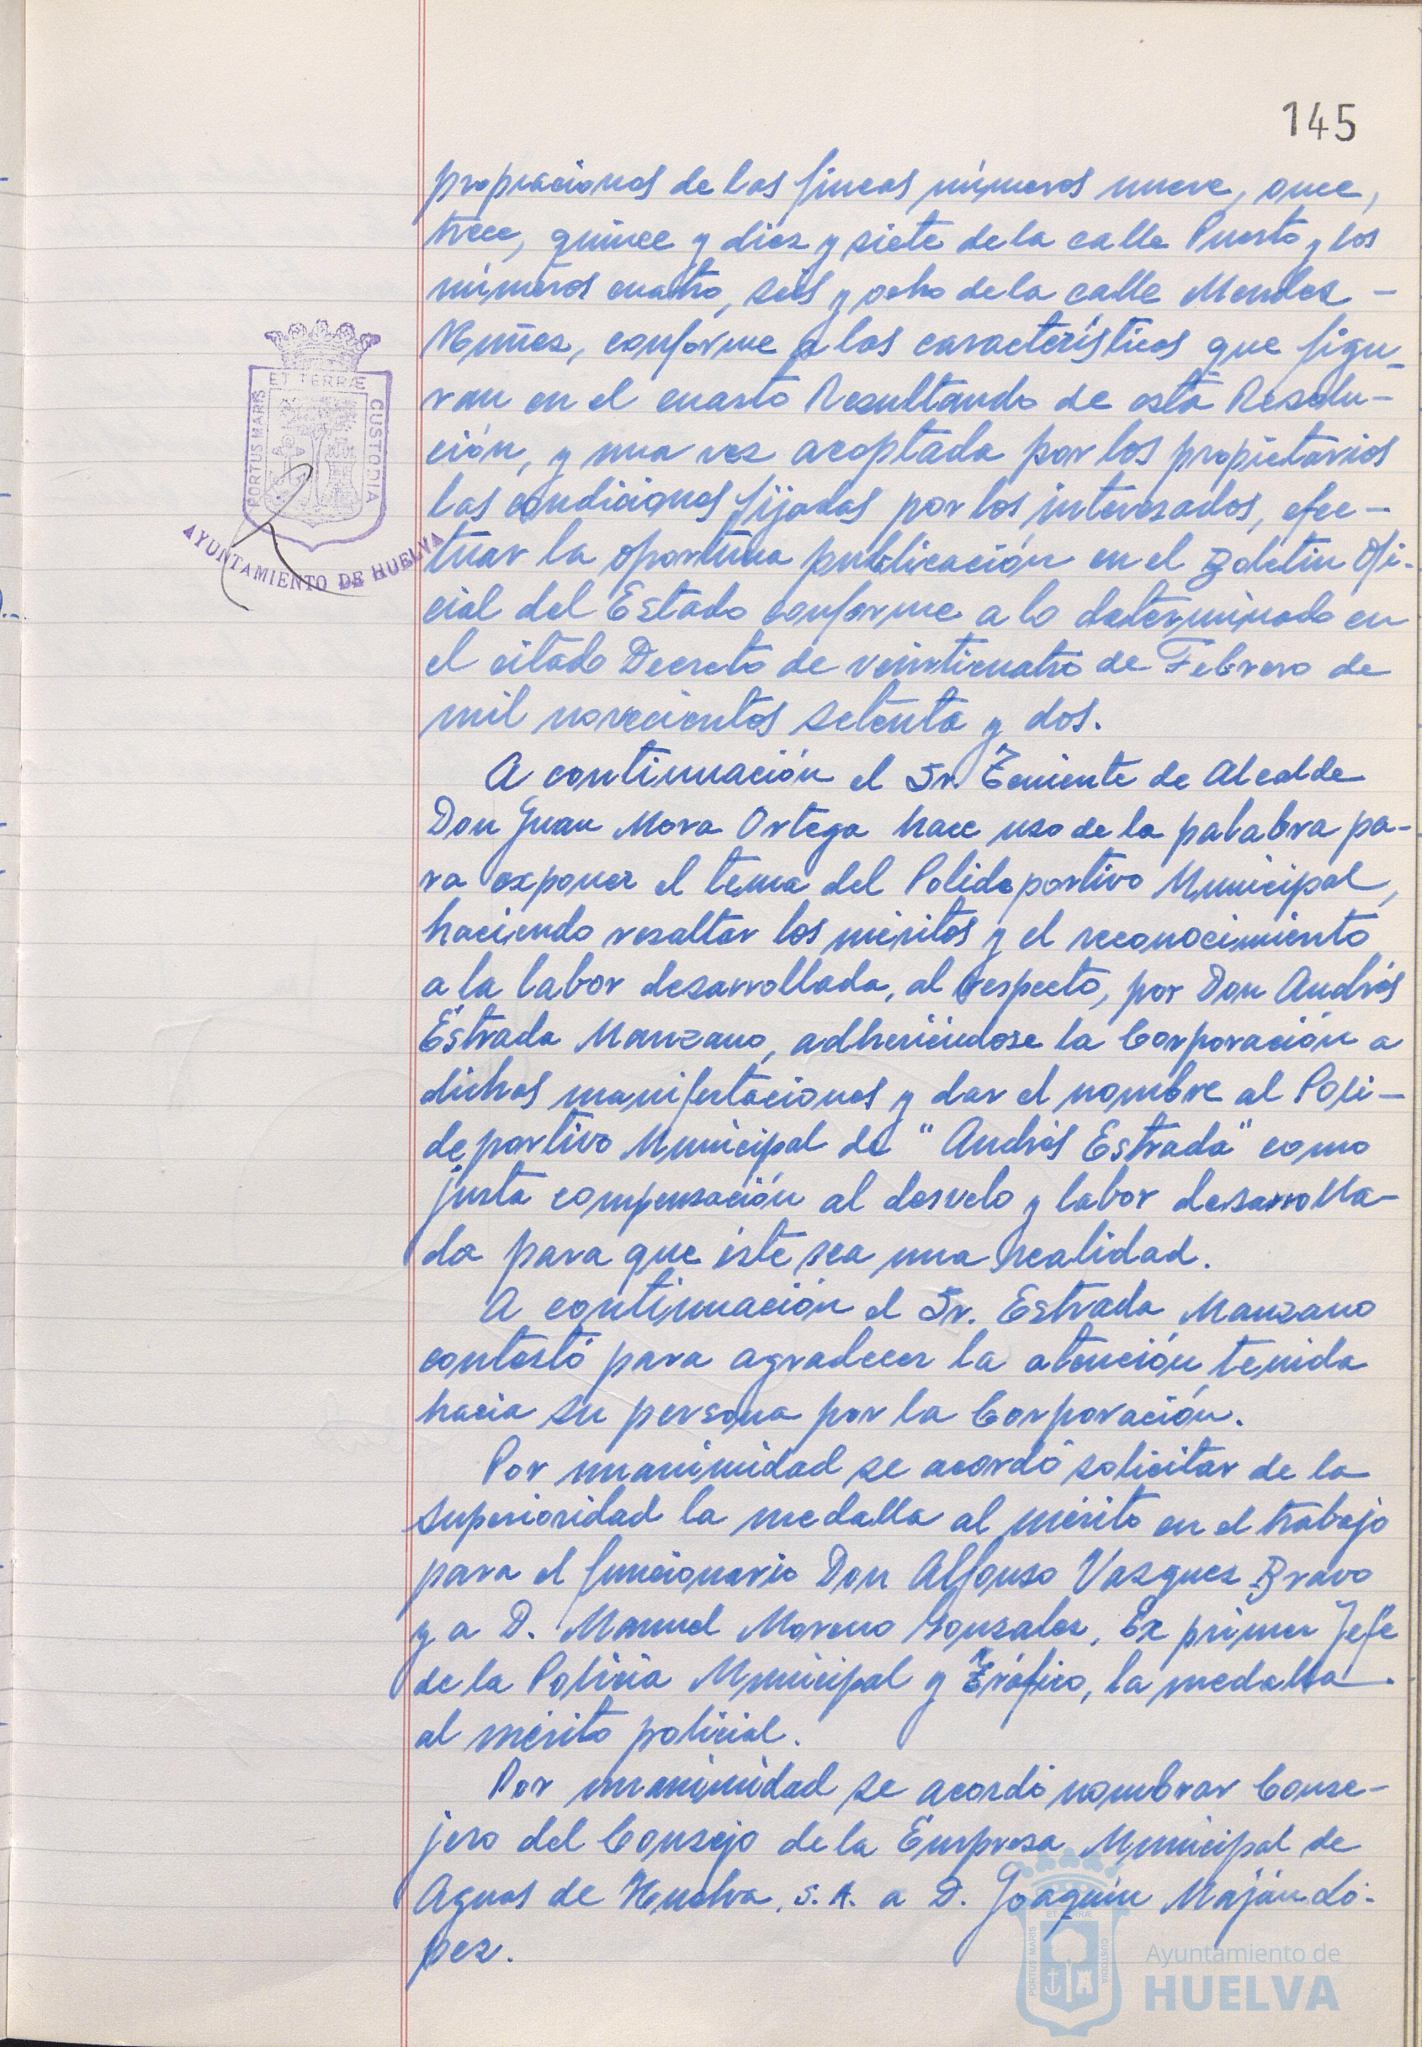 145
propiaciones de las fincas números nueve, once,
trece, quince y diez y siete de la calle Puerto y los
números cuatro, seis y ocho de la calle Mendez -
Nuñez, conforme a las características que figu-
ran en el cuarto Resultando de esta Resolu-
ción, y una vez aceptada por los propietarios
las condiciones fijadas por los interesados, efec-
tuar la oportuna publicación en el Boletin Ofi-
cial del Estado conforme a lo determinado en
el citado Decreto de veinticuatro de Febrero de
mil novecientos setenta y dos.
A continuación el Sr. Teniente de Alcalde
Don Juan Mora Ortega hace uso de la palabra pa-
ra exponer el tema del Polideportivo Municipal,
haciendo resaltar los méritos y el reconocimiento
a la labor desarrollada, al respecto, por Don Andrés
Estrada Manzano, adheriéndose la Corporación a
dichas manifestaciones y dar el nombre al Poli-
deportivo Municipal de "Andrés Estrada" como
justa compensación al desvelo y labor desarrolla-
da para que éste sea una realidad.
A continuación el Sr. Estrada Manzano
contestó para agradecer la atención tenida
hacia su persona por la Corporación.
Por unanimidad se acordó solicitar de la
superioridad la medalla al mérito en el trabajo
para el funcionario Don Alfonso Vazquez Bravo
y a D. Manuel Moreno Gonzalez, Ex primer Jefe
de la Policía Municipal y Tráfico, la medalla
al mérito policial.
Por unanimidad se acordó nombrar Conse-
jero del Consejo de la Empresa Municipal de
Aguas de Huelva, S.A. a D. Joaquín Maján Ló-
pez.
PORTUS MARIS ET TERRÆ CUSTODIA
AYUNTAMIENTO DE HUELVA
PORTUS MARIS ET TERRÆ CUSTODIA
Ayuntamiento de
HUELVA